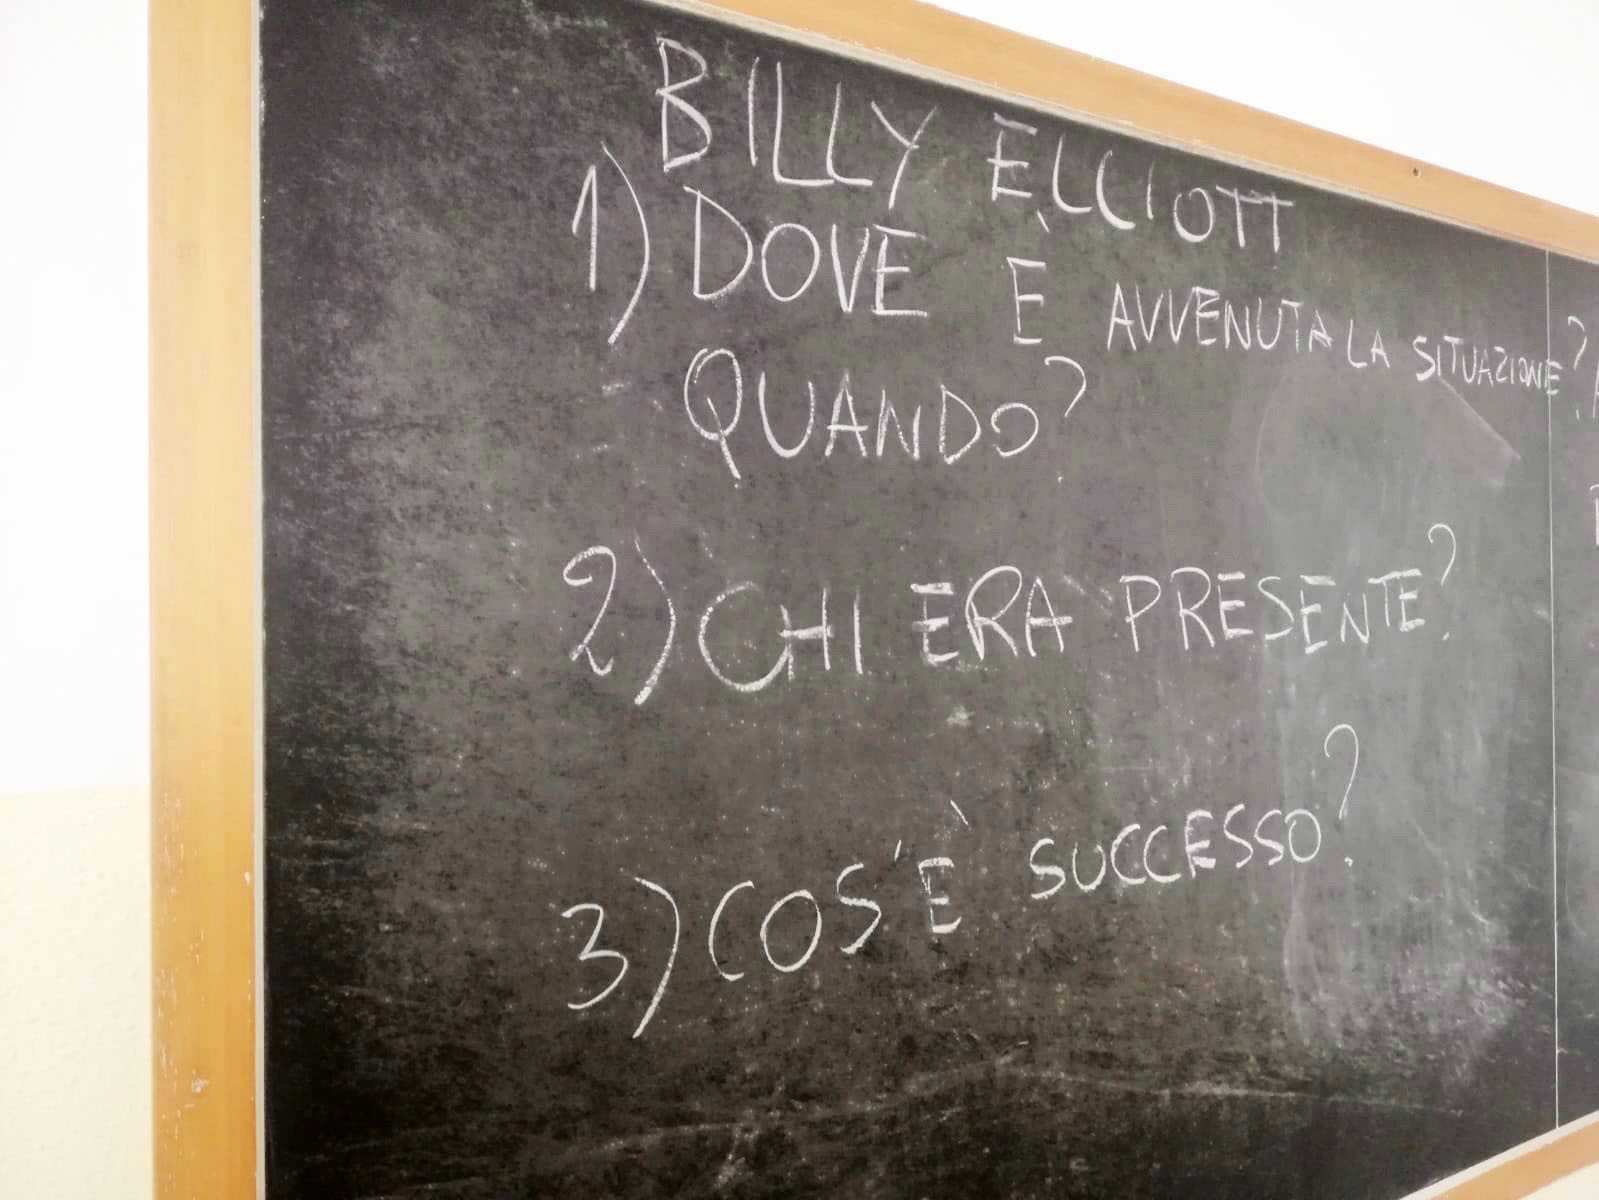 BILLY ELLIOTT
1) DOVE È AVVENUTA LA SITUAZIONE?
QUANDO?
2) CHI ERA PRESENTE?
3) COS'È SUCCESSO?